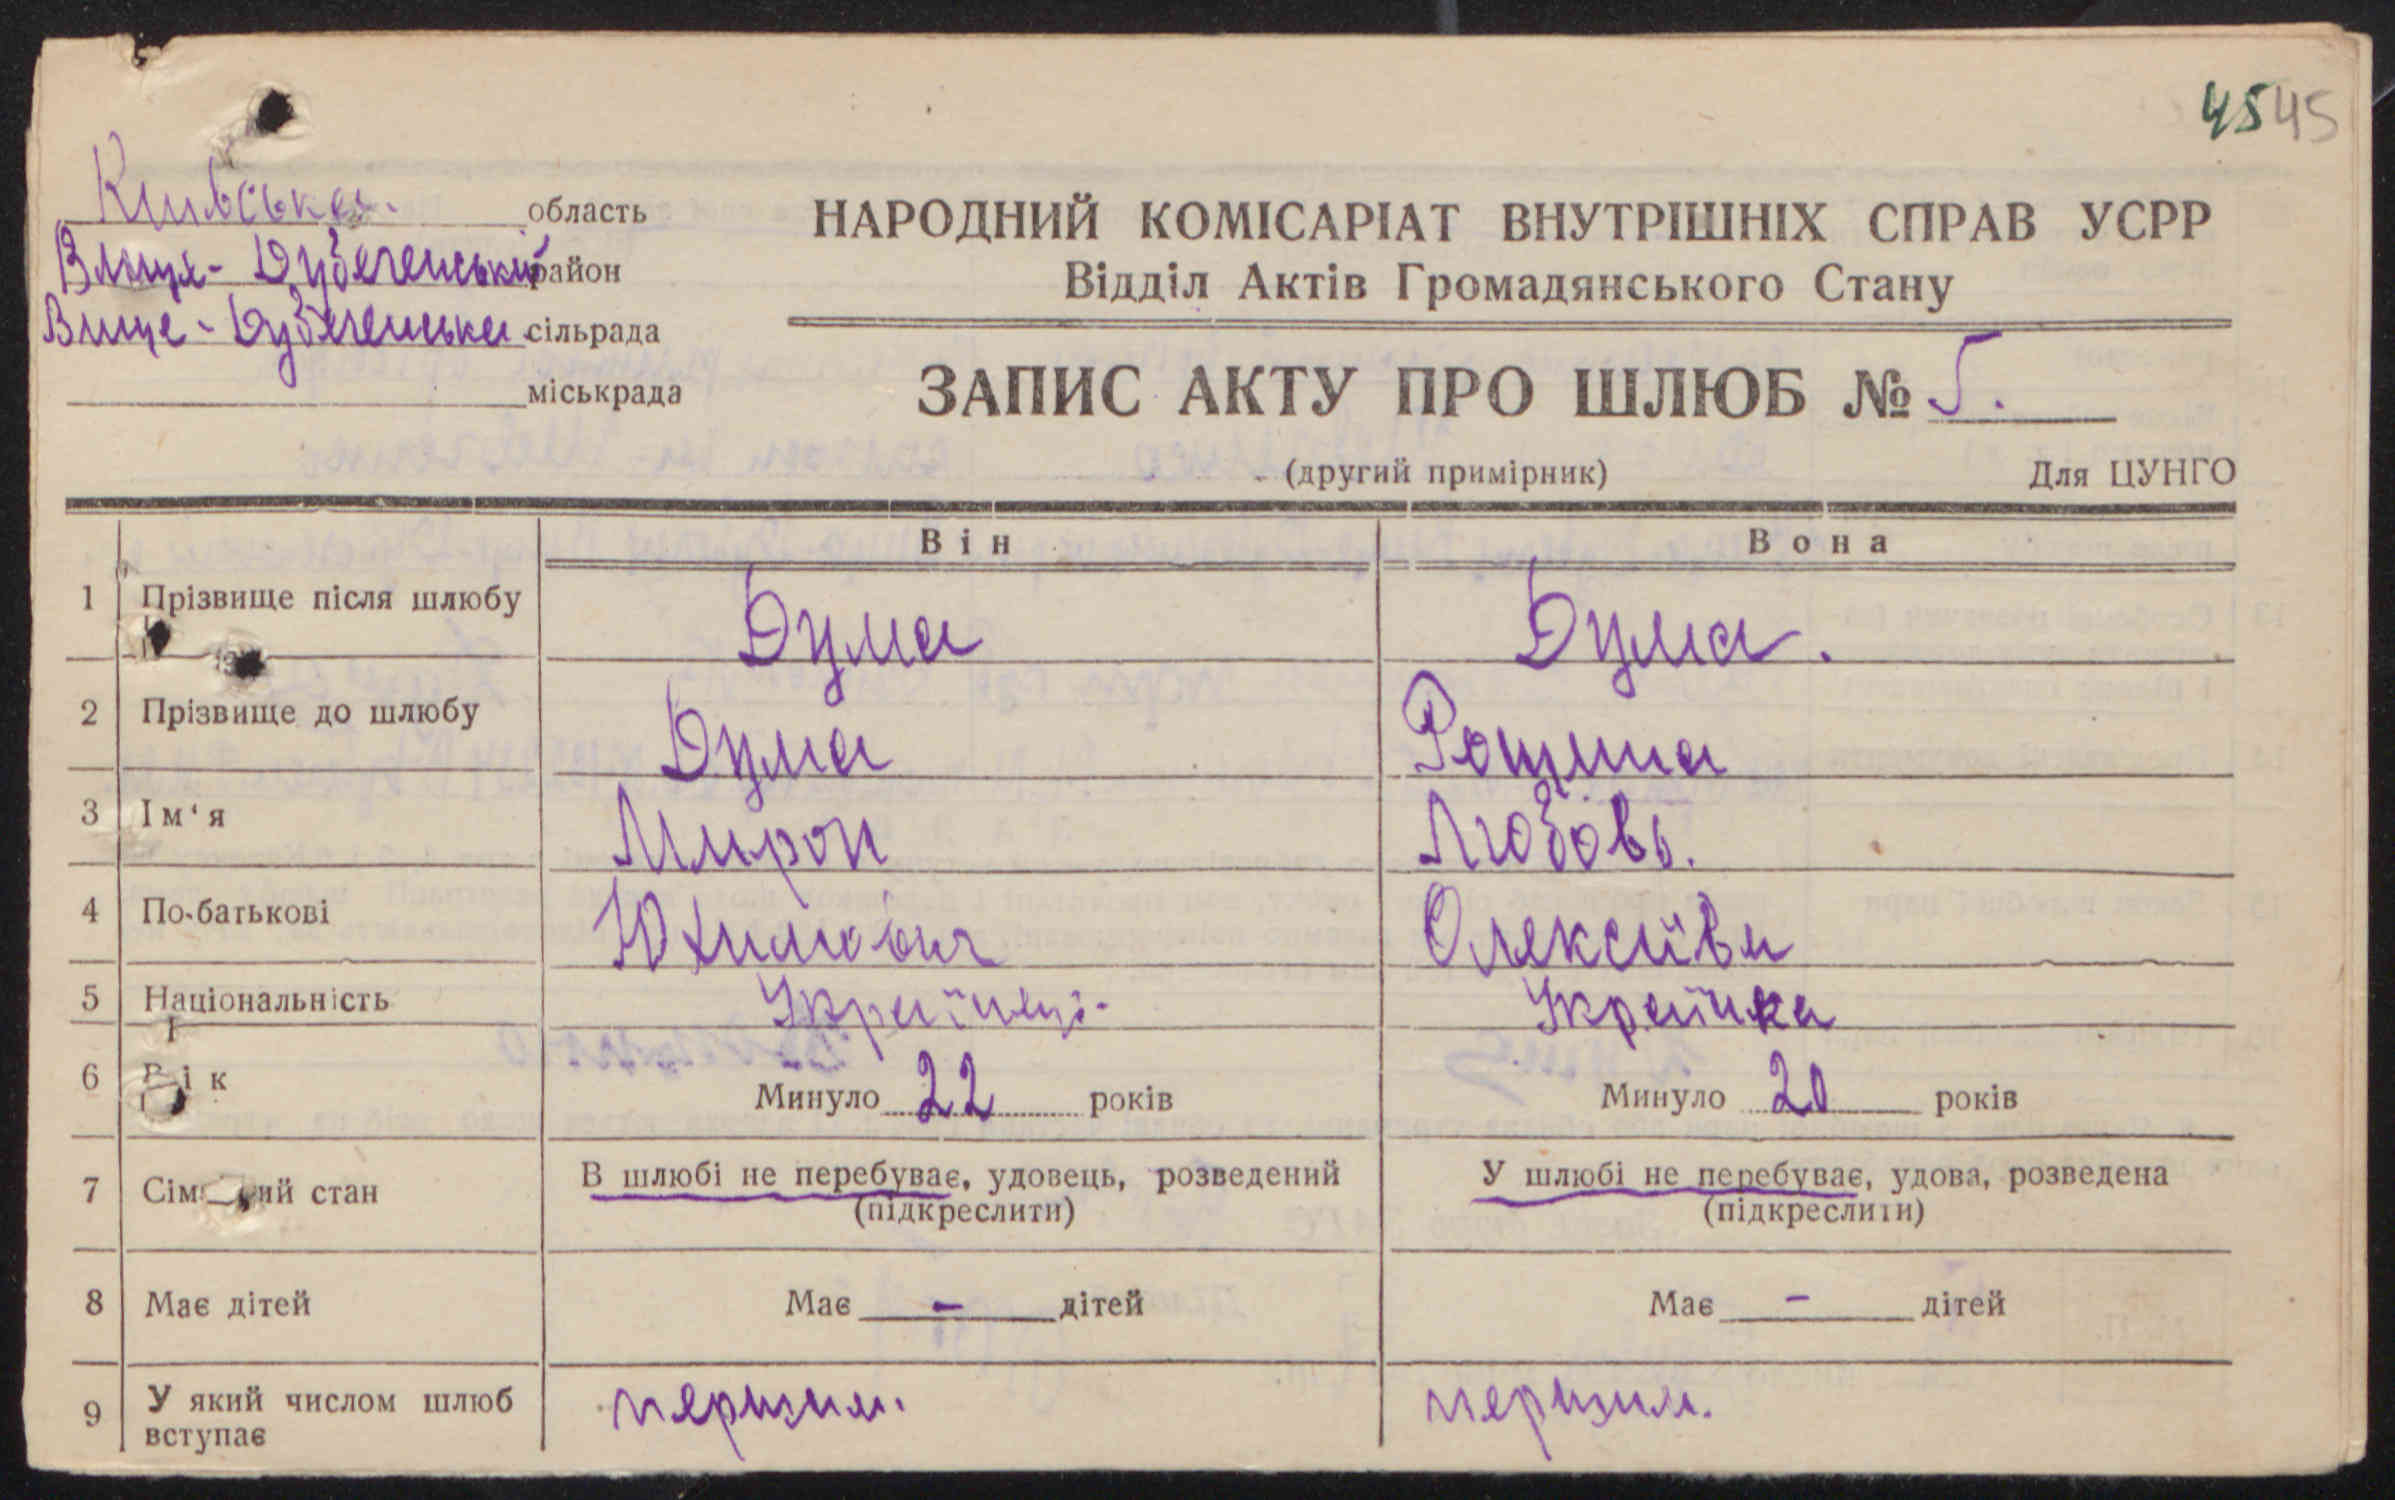 45 45
Київська область
Вище-Дубеченський район
Вище-Дубеченська сільрада
міськрада
НАРОДНИЙ КОМІСАРІАТ ВНУТРІШНІХ СПРАВ УСРР
Відділ Актів Громадянського Стану
ЗАПИС АКТУ ПРО ШЛЮБ № 5.
(другий примірник) Для ЦУНГО
Він Вона
1 Прізвище після шлюбу Дума Дума.
2 Прізвище до шлюбу Дума
3 Ім‘я Мирон Любовь.
4 По-батькові Юхимович Олексіївн
5 Національність Українец. Українка
6 Вік Минуло 22 років Минуло 20 років
7 стан В шлюбі не перебуває, удовець, розведений У шлюбі не перебуває, удова, розведена
(підкреслити) (підкреслити)
8 Має дітей Має - дітей Має - дітей
9 У який числом шлюб вступає першим. першим.